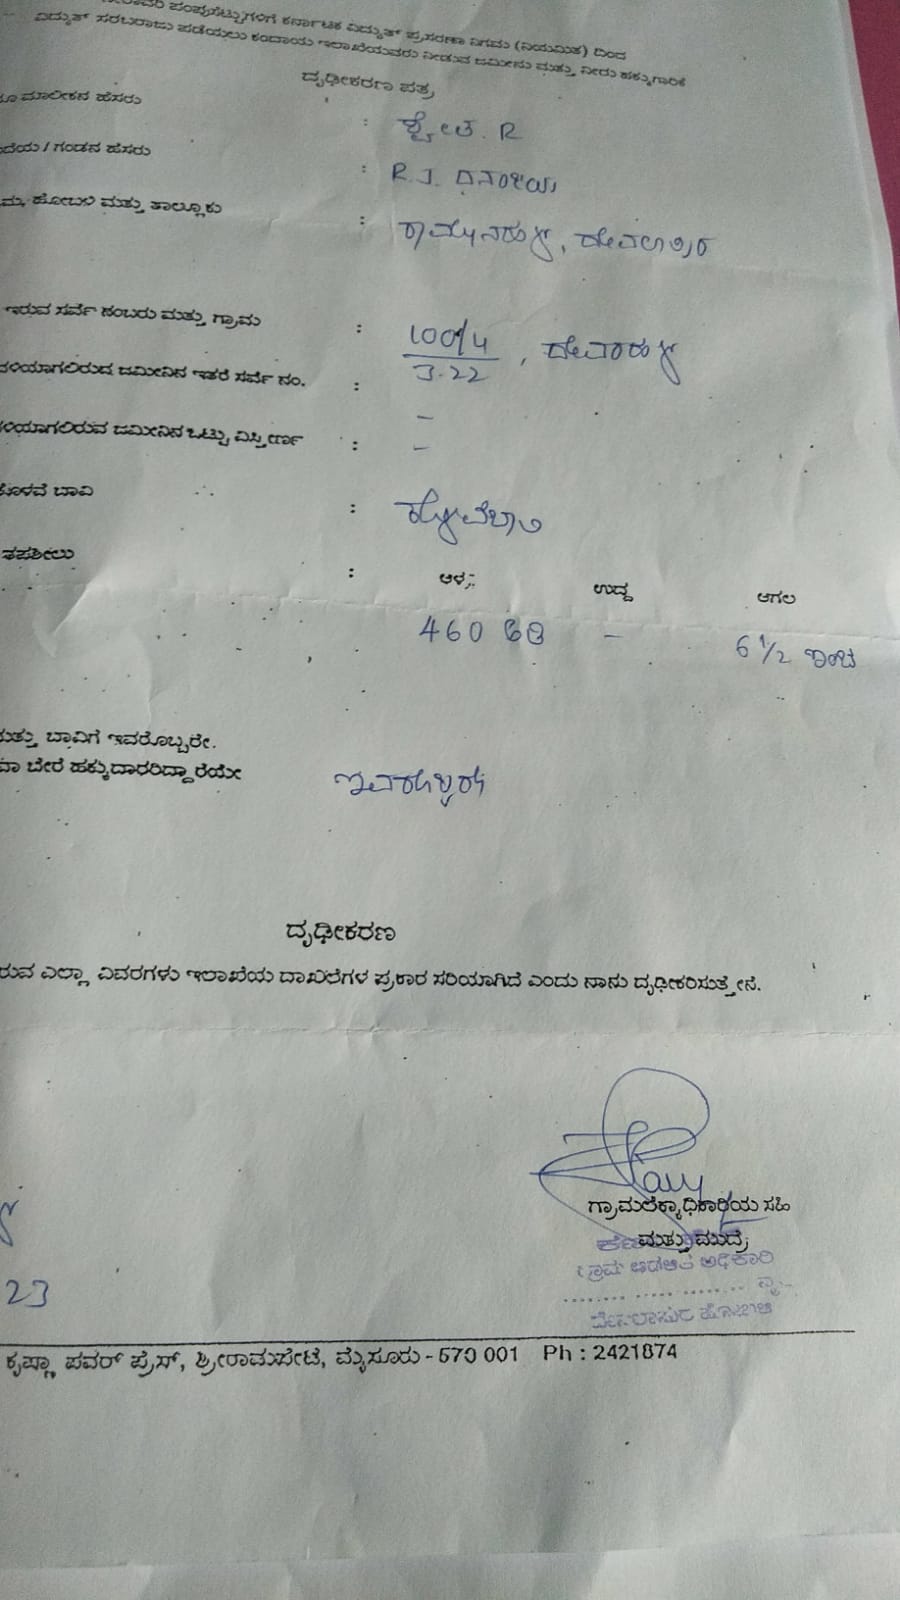 ಪಂಪುಸೆಟ್ಟುಗಳಿಗೆ ಕರ್ನಾಟಕ ವಿದ್ಯುತ್ ಪ್ರಸರಣಾ ನಿಗಮ (ನಿಯಮಿತ) ದಿಂದ
ವಿದ್ಯುತ್ ಸರಬರಾಜು ಪಡೆಯಲು ಕಂದಾಯ ಇಲಾಖೆಯವರು ನೀಡುವ ಜಮೀನು ಮತ್ತು ನೀರು ಹಕ್ಕುಗಾರಿಕೆ
ದೃಢೀಕರಣ ಪತ್ರ
ಮಾಲೀಕನ ಹೆಸರು : ಶ್ವೇತ. R
ದೆಯ / ಗಂಡನ ಹೆಸರು : R.J.
ಹೋಬಳಿ ಮತ್ತು ತಾಲ್ಲೂಕು :
ಇರುವ ಸರ್ವೆ ನಂಬರು ಮತ್ತು ಗ್ರಾಮ : 100/4
ಳಿಯಾಗಲಿರುದ ಜಮೀನಿನ ಇತರೆ ಸರ್ವೆ ನಂ. : 3-22
ಳಿಯಾಗಲಿರುವ ಜಮೀನಿನ ಒಟ್ಟು ವಿಸ್ತೀರ್ಣ : –
–
ಕೊಳವೆ ಬಾವಿ :
ತಪಶೀಲು : ಆಳ; ಉದ್ದ ಅಗಲ
460 ಅಡಿ – 6 1/2 ಇಂಚು
ಮತ್ತು ಬಾವಿಗೆ ಇವರೊಬ್ಬರೇ.
ವಾ ಬೇರೆ ಹಕ್ಕುದಾರರಿದ್ದಾರೆಯೇ ಇವರೊಬ್ಬರೇ
ದೃಢೀಕರಣ
ರುವ ಎಲ್ಲಾ ವಿವರಗಳು ಇಲಾಖೆಯ ದಾಖಲೆಗಳ ಪ್ರಕಾರ ಸರಿಯಾಗಿದೆ ಎಂದು ನಾನು ದೃಢೀಕರಿಸುತ್ತೇನೆ.
ಗ್ರಾಮಲೆಕ್ಕಾಧಿಕಾರಿಯ ಸಹಿ
ಮತ್ತು ಮುದ್ರೆ
ಗ್ರಾಮ ಆಡಳಿತ ಅಧಿಕಾರಿ
23
ಕೃಷ್ಣಾ ಪವರ್ ಪ್ರೆಸ್, ಶ್ರೀರಾಮಪೇಟೆ, ಮೈಸೂರು - 570 001 Ph : 2421874